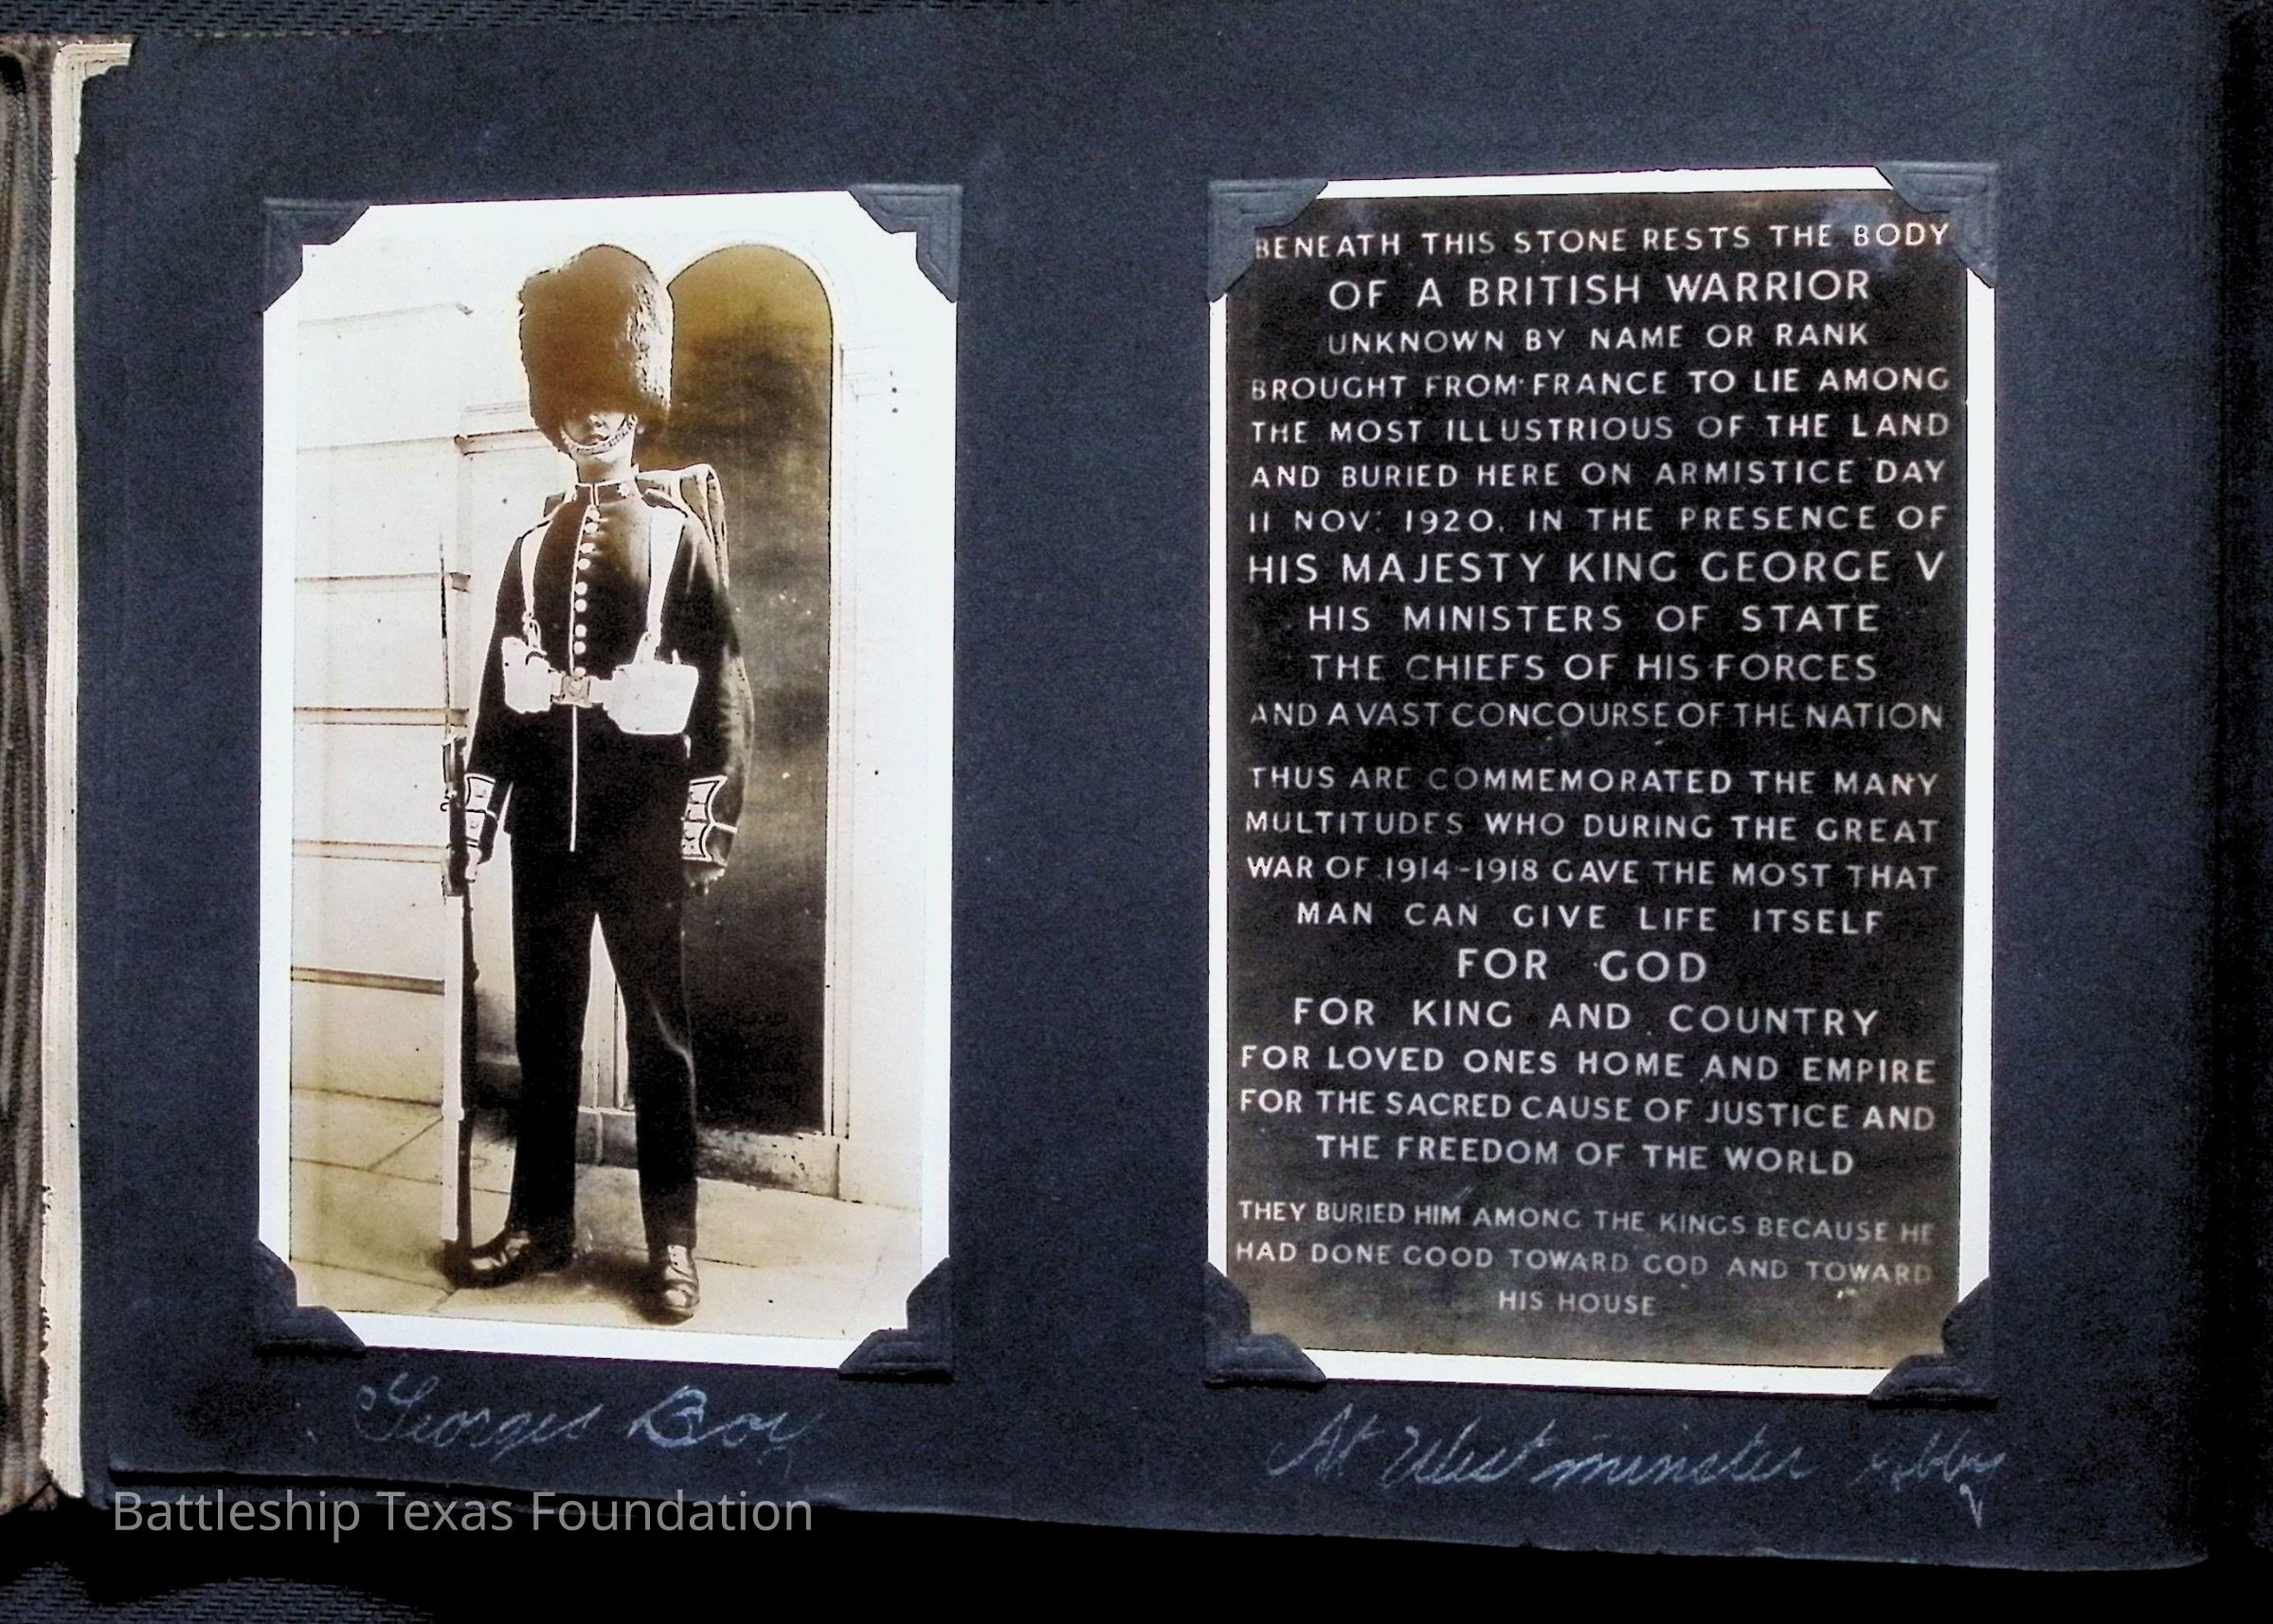 BENEATH THIS STONE RESTS THE BODY
OF A BRITISH WARRIOR
UNKNOWN BY NAME OR RANK
BROUGHT FROM FRANCE TO LIE AMONG
THE MOST ILLUSTRIOUS OF THE LAND
AND BURIED HERE ON ARMISTICE DAY
11 NOV: 1920. IN THE PRESENCE OF
HIS MAJESTY KING GEORGE V
HIS MINISTERS OF STATE
THE CHIEFS OF HIS FORCES
AND A VAST CONCOURSE OF THE NATION
THUS ARE COMMEMORATED THE MANY
MULTITUDES WHO DURING THE GREAT
WAR OF 1914-1918 GAVE THE MOST THAT
MAN CAN GIVE LIFE ITSELF
FOR GOD
FOR KING AND COUNTRY
FOR LOVED ONES HOME AND EMPIRE
FOR THE SACRED CAUSE OF JUSTICE AND
THE FREEDOM OF THE WORLD
THEY BURIED HIM AMONG THE KINGS BECAUSE HE
HAD DONE GOOD TOWARD GOD AND TOWARD
HIS HOUSE
Georges Boy
At Westminster Abby
Battleship Texas Foundation